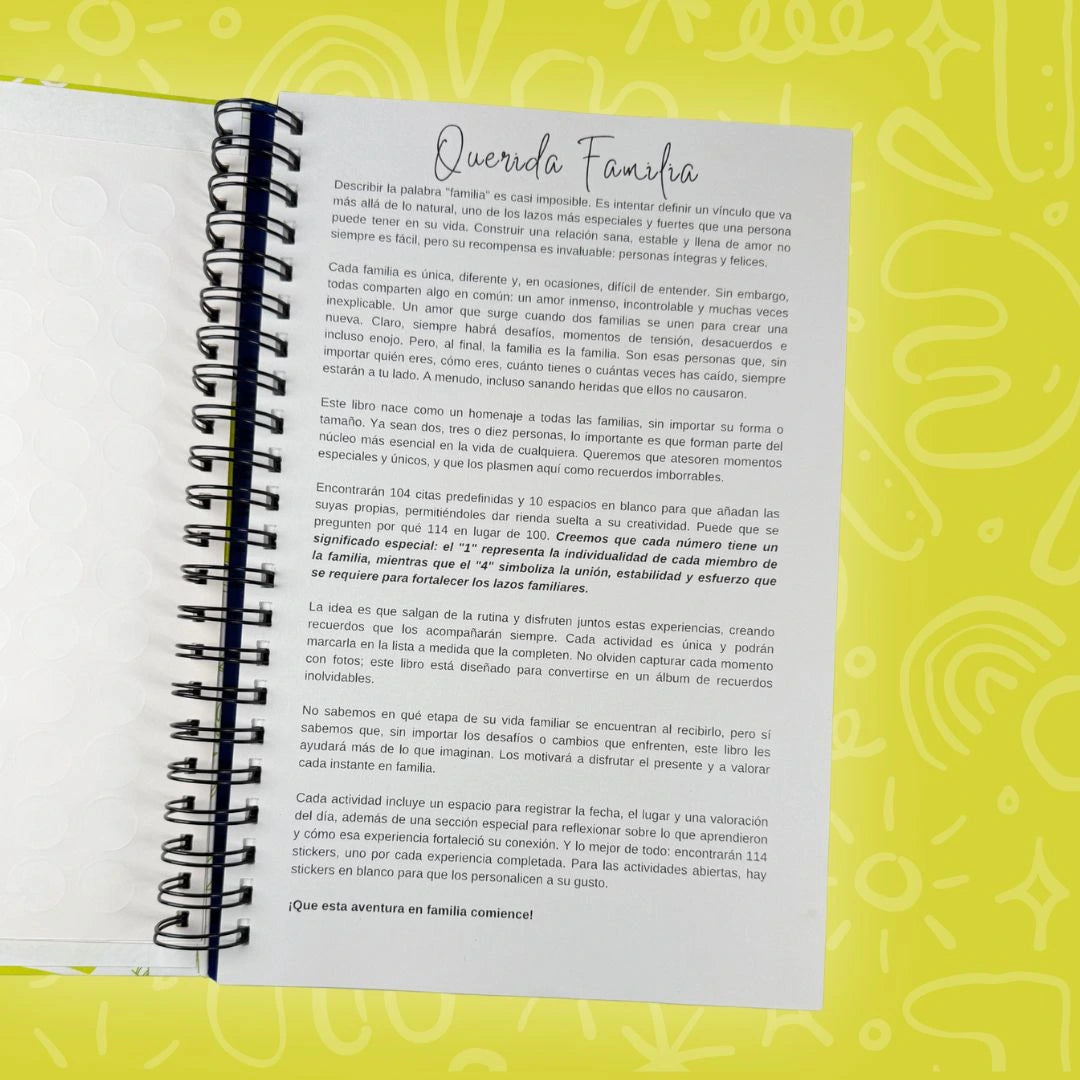 Querida Familia
Describir la palabra "familia" es casi imposible. Es intentar definir un vínculo que va
más allá de lo natural, uno de los lazos más especiales y fuertes que una persona
puede tener en su vida. Construir una relación sana, estable y llena de amor no
siempre es fácil, pero su recompensa es invaluable: personas íntegras y felices.
Cada familia es única, diferente y, en ocasiones, difícil de entender. Sin embargo,
todas comparten algo en común: un amor inmenso, incontrolable y muchas veces
inexplicable. Un amor que surge cuando dos familias se unen para crear una
nueva. Claro, siempre habrá desafíos, momentos de tensión, desacuerdos e
incluso enojo. Pero, al final, la familia es la familia. Son esas personas que, sin
importar quién eres, cómo eres, cuánto tienes o cuántas veces has caído, siempre
estarán a tu lado. A menudo, incluso sanando heridas que ellos no causaron.
Este libro nace como un homenaje a todas las familias, sin importar su forma o
tamaño. Ya sean dos, tres o diez personas, lo importante es que forman parte del
núcleo más esencial en la vida de cualquiera. Queremos que atesoren momentos
especiales y únicos, y que los plasmen aquí como recuerdos imborrables.
Encontrarán 104 citas predefinidas y 10 espacios en blanco para que añadan las
suyas propias, permitiéndoles dar rienda suelta a su creatividad. Puede que se
pregunten por qué 114 en lugar de 100. Creemos que cada número tiene un
significado especial: el "1" representa la individualidad de cada miembro de
la familia, mientras que el "4" simboliza la unión, estabilidad y esfuerzo que
se requiere para fortalecer los lazos familiares.
La idea es que salgan de la rutina y disfruten juntos estas experiencias, creando
recuerdos que los acompañarán siempre. Cada actividad es única y podrán
marcarla en la lista a medida que la completen. No olviden capturar cada momento
con fotos; este libro está diseñado para convertirse en un álbum de recuerdos
inolvidables.
No sabemos en qué etapa de su vida familiar se encuentran al recibirlo, pero sí
sabemos que, sin importar los desafíos o cambios que enfrenten, este libro les
ayudará más de lo que imaginan. Los motivará a disfrutar el presente y a valorar
cada instante en familia.
Cada actividad incluye un espacio para registrar la fecha, el lugar y una valoración
del día, además de una sección especial para reflexionar sobre lo que aprendieron
y cómo esa experiencia fortaleció su conexión. Y lo mejor de todo: encontrarán 114
stickers, uno por cada experiencia completada. Para las actividades abiertas, hay
stickers en blanco para que los personalicen a su gusto.
¡Que esta aventura en familia comience!